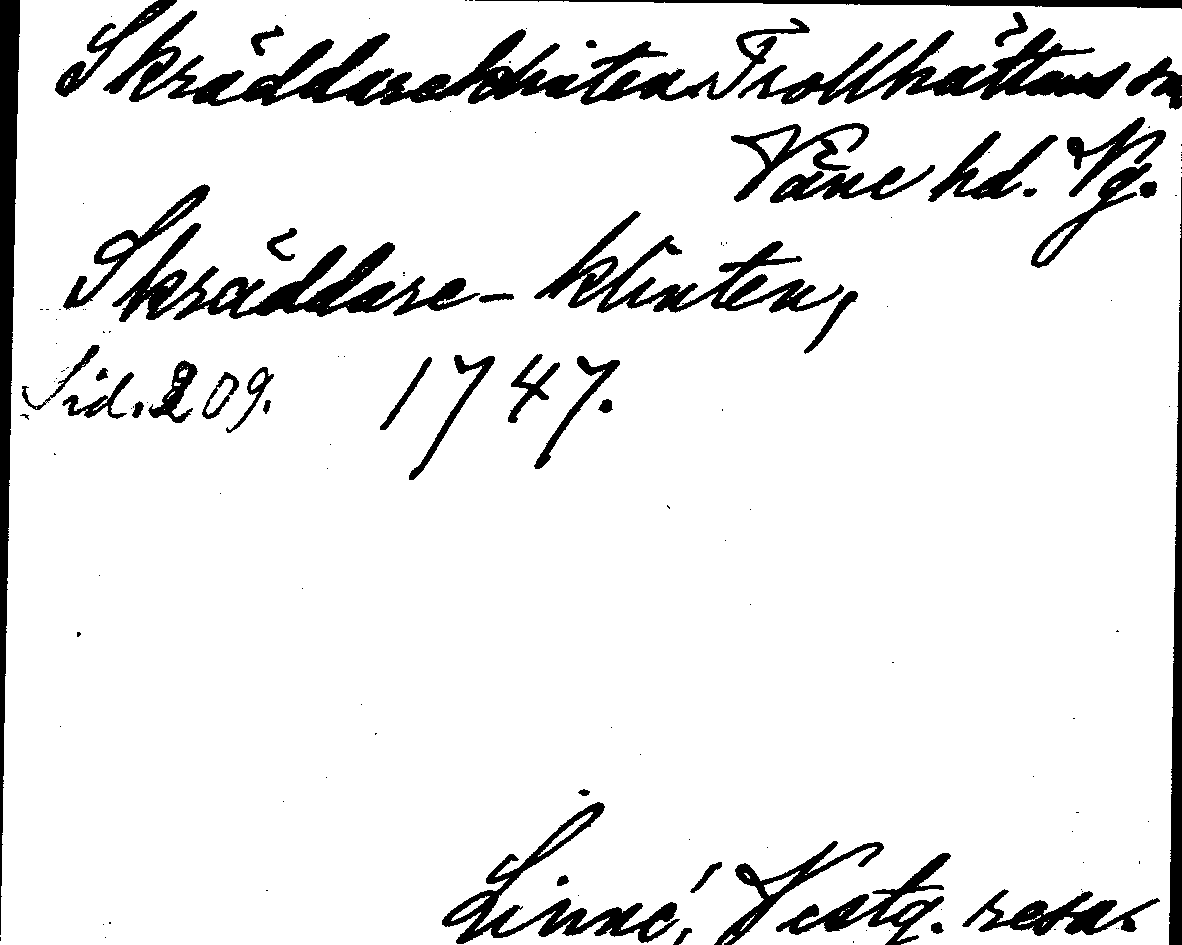 Skräddareklinten Trollhättans sn
Väne hd. Vg.
Skräddare-klinten,
Sid. 209. 1747.
Linné, Vestg. resa.